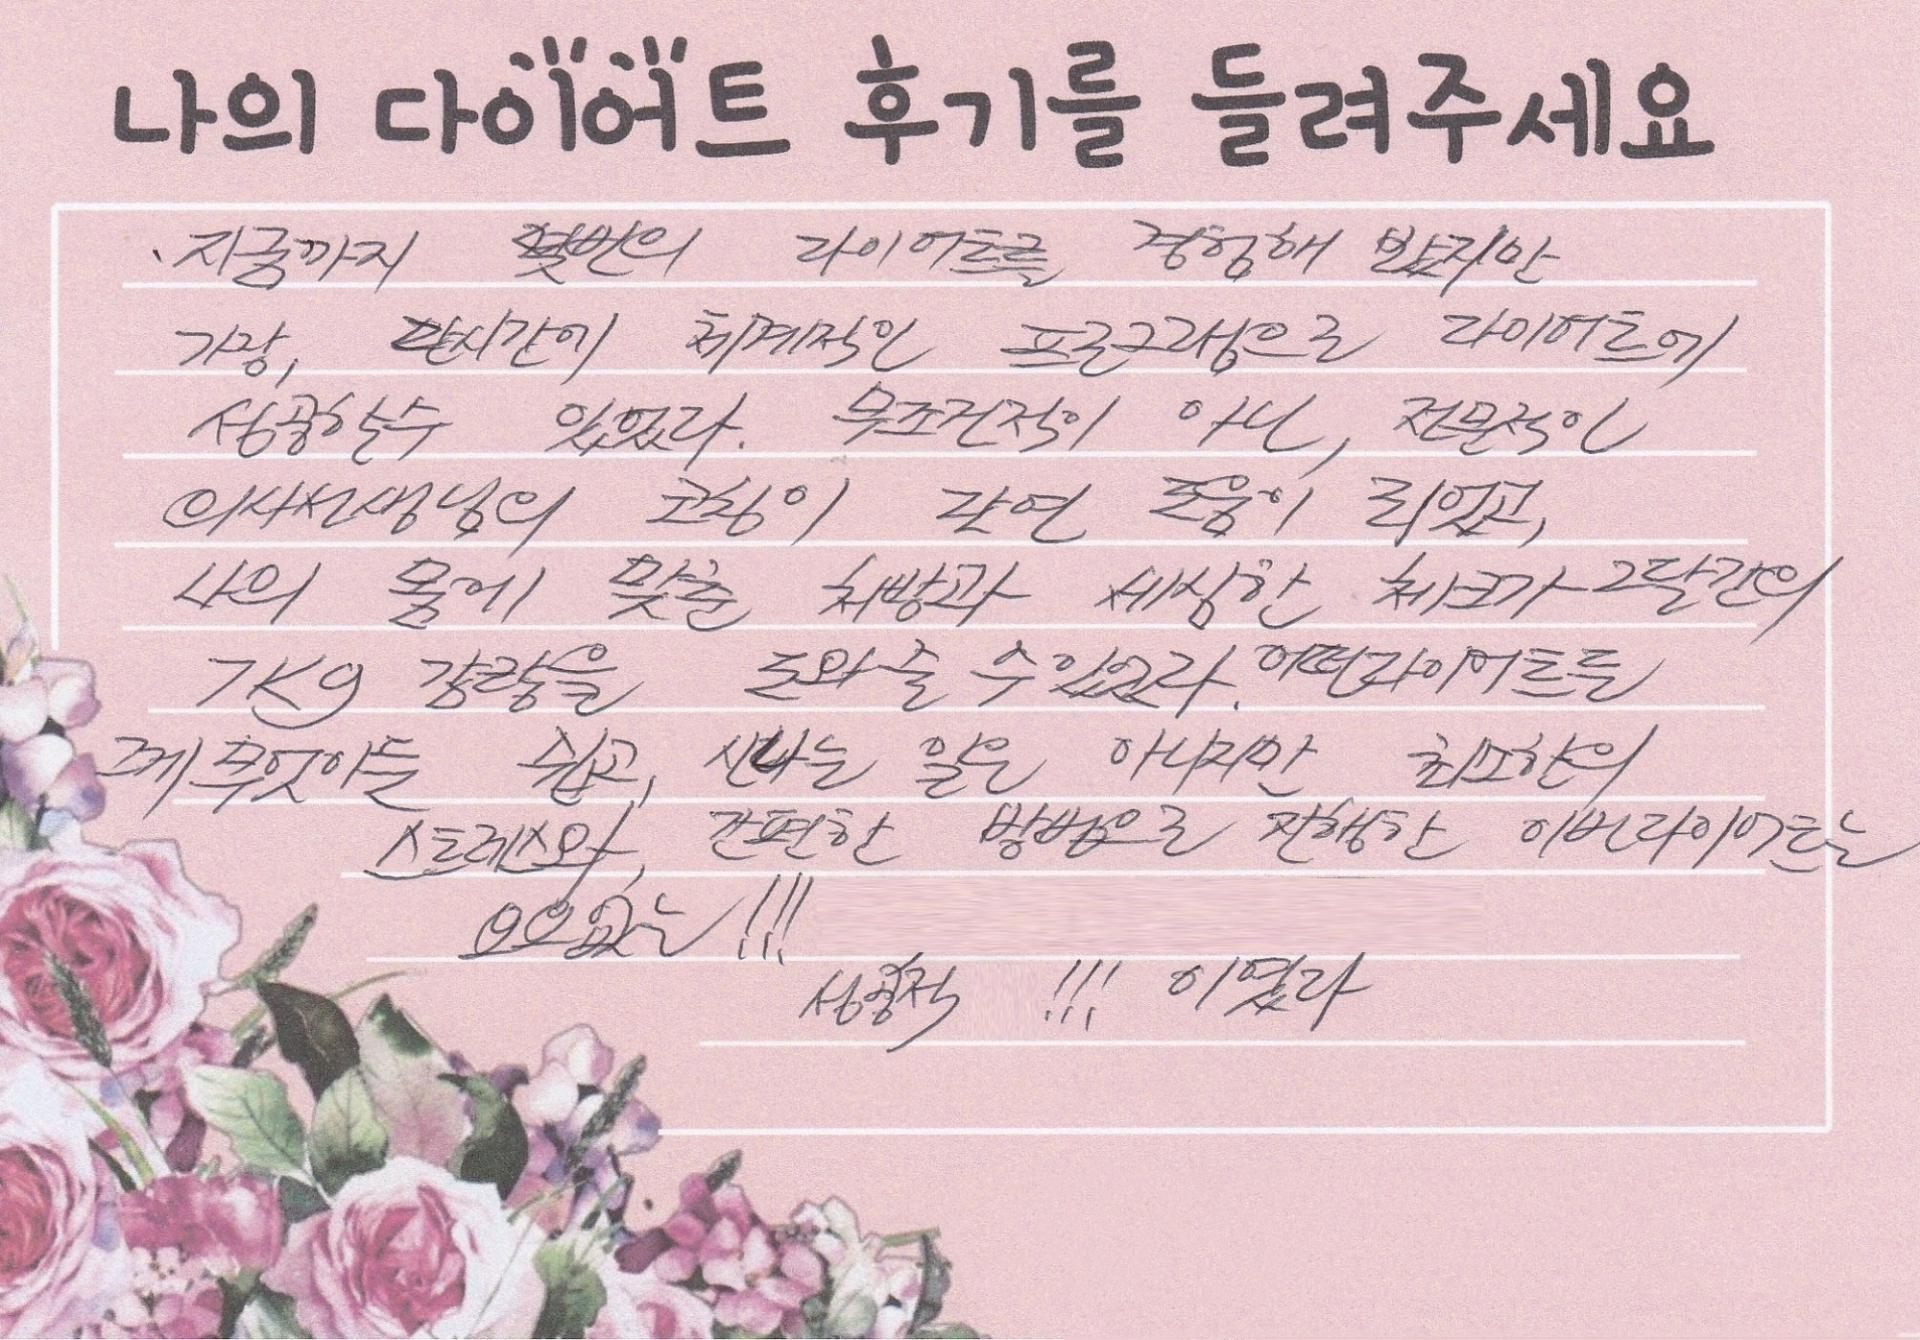 나의 다이어트 후기를 들려주세요
지금까지 몇번의 다이어트를 경험해 봤지만
가장, 단시간에 체계적인 프로그램으로 다이어트에
성공할수 있었다. 무조건적이 아닌, 전문적인
의사선생님의 코칭이 단연 도움이 되었고,
나의 몸에 맞춘 처방과 세심한 체크가 2달간의
7Kg 감량을 도와줄 수 있었다. 어떤다이어트든
그게 무엇이든 쉽고, 신나는 일은 아니지만 최소한의
스트레스와, 간편한 방법으로 진행한 이번다이어트는
요요없는 !!!
성공적 !!! 이였다